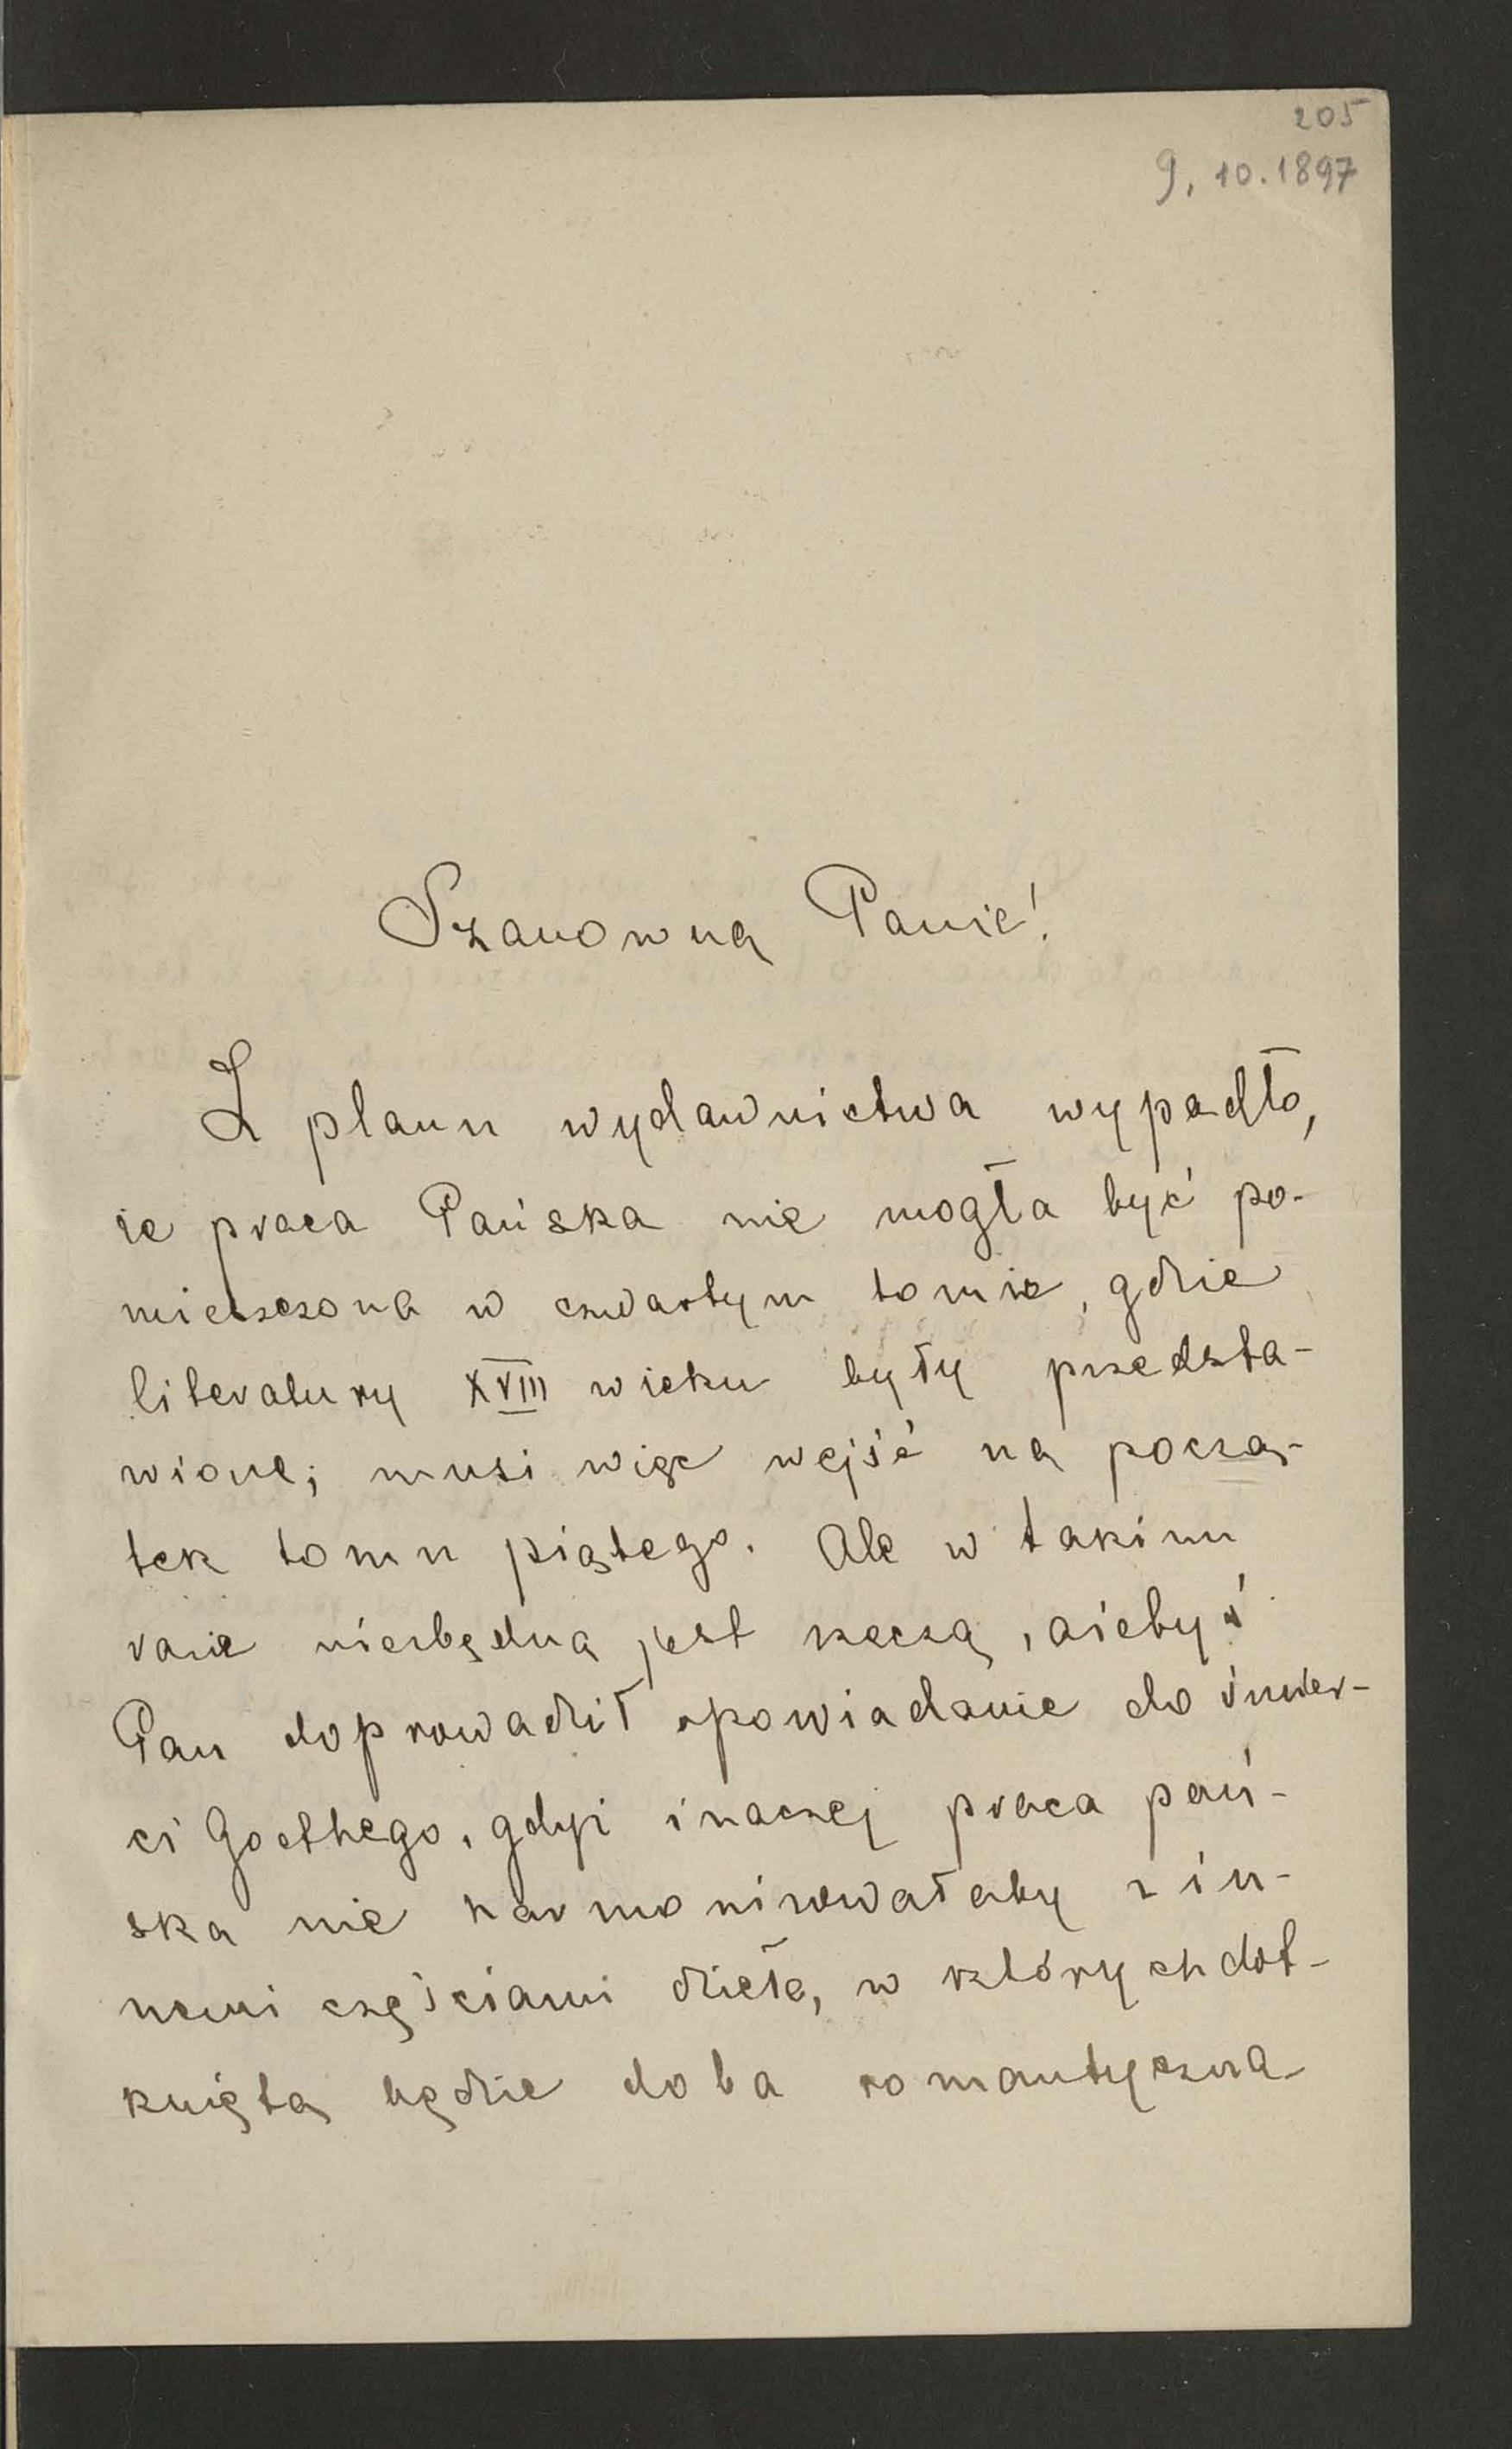 205
9. 10. 1897
Szanowny Panie!
Z planu wydawnictwa wypadło,
że praca Pańska nie mogła być po-
mieszczona w czwartym tomie, gdzie
literatury XVIII wieku były przedsta-
wione; musi więc wejść na począ-
tek tomu piątego. Ale w takim
razie niezbędną jest rzeczą, ażebyś
Pan doprowadził opowiadanie do śmier-
ci Goethego, gdyż inaczej praca pań-
ska nie harmonizowałaby z in-
nemi częściami dzieła, w których dot-
kniętą będzie doba romantyczna